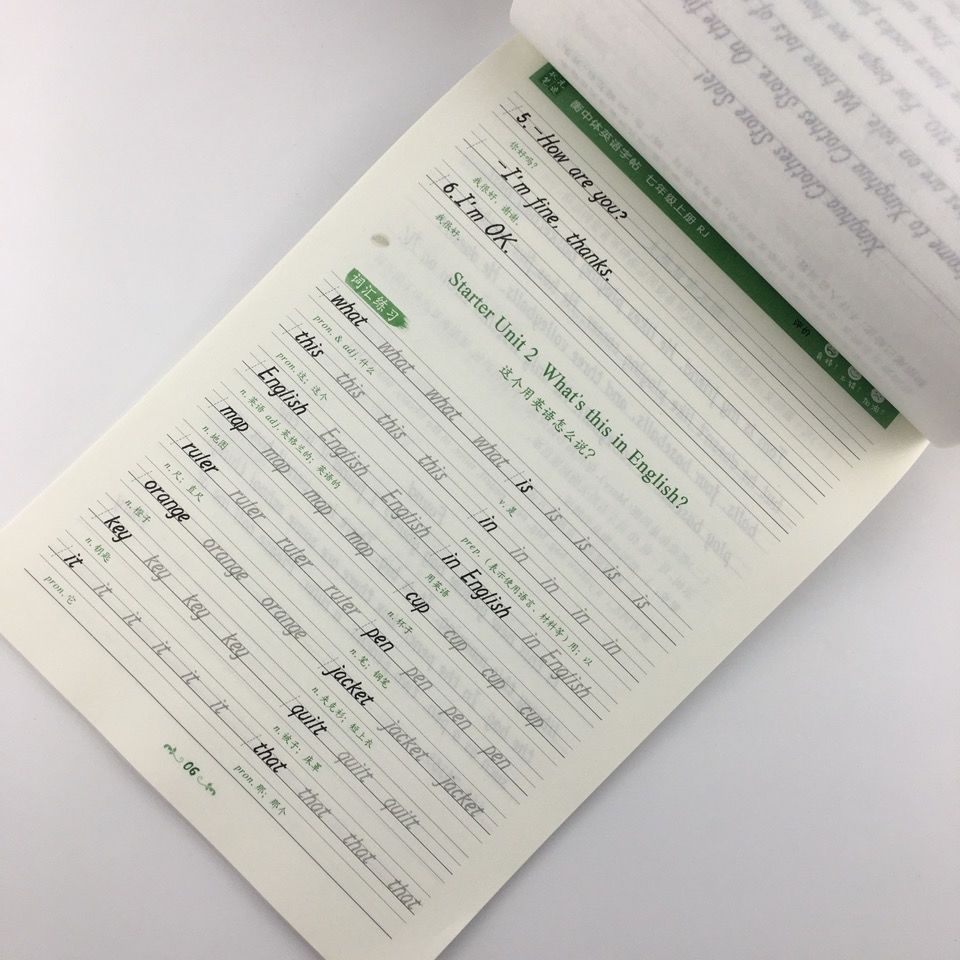 衡中体英语字帖 七年级上册 RJ
评价
5. -How are you?
你好吗?
-I'm fine, thanks.
我很好，谢谢。
6. I'm OK.
我很好。
Starter Unit 2 What's this in English?
这个用英语怎么说?
词汇练习
what what what what is is is is
pron. & adj. 什么 v. 是
this this this this in in in in
pron. 这；这个 prep. (表示使用语言、材料等) 用；以
English English English in English in English
n. 英语 adj. 英格兰的；英语的 用英语
map map map map cup cup cup cup
n. 地图 n. 杯子
ruler ruler ruler ruler pen pen pen pen
n. 尺；直尺 n. 笔；钢笔
orange orange orange jacket jacket jacket
n. 橙子 n. 夹克衫；短上衣
key key key key quilt quilt quilt
n. 钥匙 n. 被子；床罩
it it it it it that that that that
pron. 它 pron. 那；那个
06
Xinghua Clothes Store Sale!